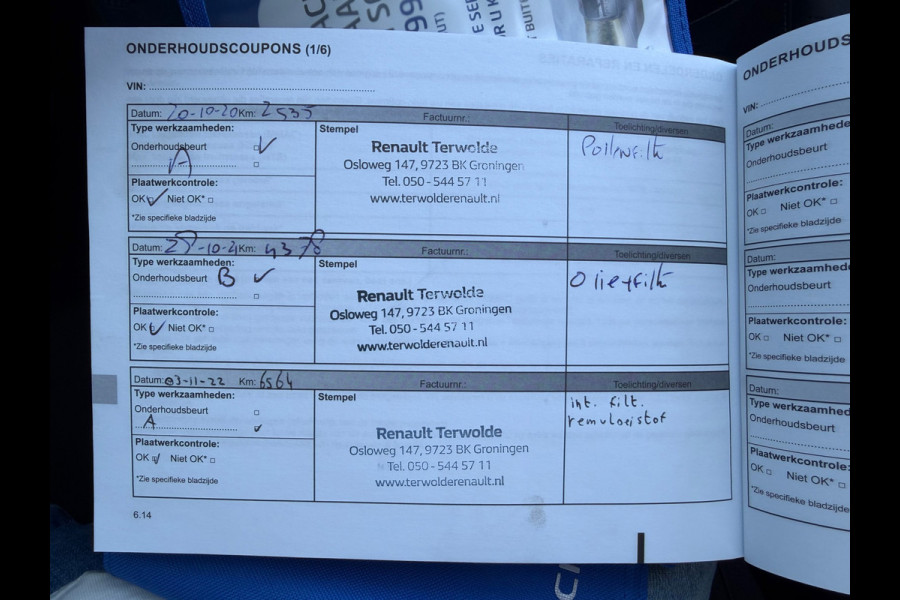 ONDERHOUDSCOUPONS (1/6)
VIN:
Datum: 20-10-20 Km: 2535 Factuurnr.: Toelichting/diversen
Type werkzaamheden:
Onderhoudsbeurt
A
Plaatwerkcontrole:
OK Niet OK*
*Zie specifieke bladzijde
Stempel
Renault Terwolde
Osloweg 147, 9723 BK Groningen
Tel. 050 - 544 57 11
www.terwolderenault.nl
Pollenfilt
Datum: 25-10-21 Km: 4378 Factuurnr.: Toelichting/diversen
Type werkzaamheden:
Onderhoudsbeurt B
Plaatwerkcontrole:
OK Niet OK*
*Zie specifieke bladzijde
Stempel
Renault Terwolde
Osloweg 147, 9723 BK Groningen
Tel. 050 - 544 57 11
www.terwolderenault.nl
Olie+filt
Datum: 03-11-22 Km: 6564 Factuurnr.: Toelichting/diversen
Type werkzaamheden:
Onderhoudsbeurt
A
Plaatwerkcontrole:
OK Niet OK*
*Zie specifieke bladzijde
Stempel
Renault Terwolde
Osloweg 147, 9723 BK Groningen
Tel. 050 - 544 57 11
www.terwolderenault.nl
int. filt.
remvloeistof
6.14
ONDERHOUDS
VIN:
Datum:
Type werkzaamhede
Onderhoudsbeurt
Plaatwerkcontrole:
OK Niet OK*
*Zie specifieke bladzijde
Datum:
Type werkzaamhede
Onderhoudsbeurt
Plaatwerkcontrole:
OK Niet OK*
*Zie specifieke bladzijde
Datum:
Type werkzaamhed
Onderhoudsbeurt
Plaatwerkcontrole:
OK Niet OK*
*Zie specifieke bladzijde